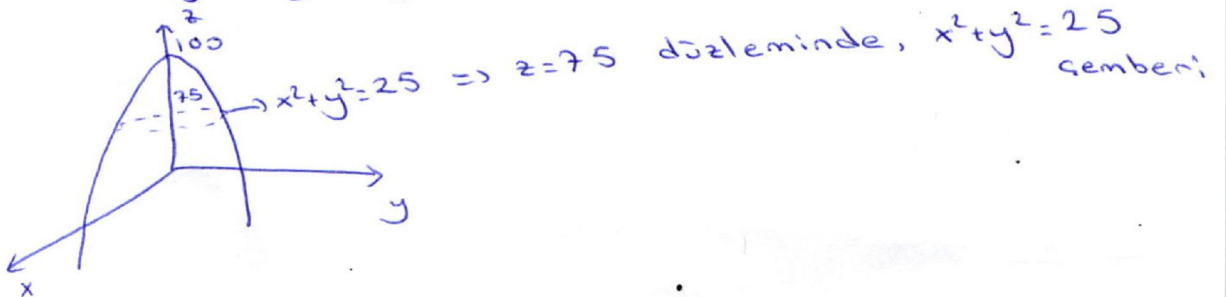 z
100
75
→ x²+y²=25 => z=75 düzleminde, x²+y²=25
çemberi
y
x